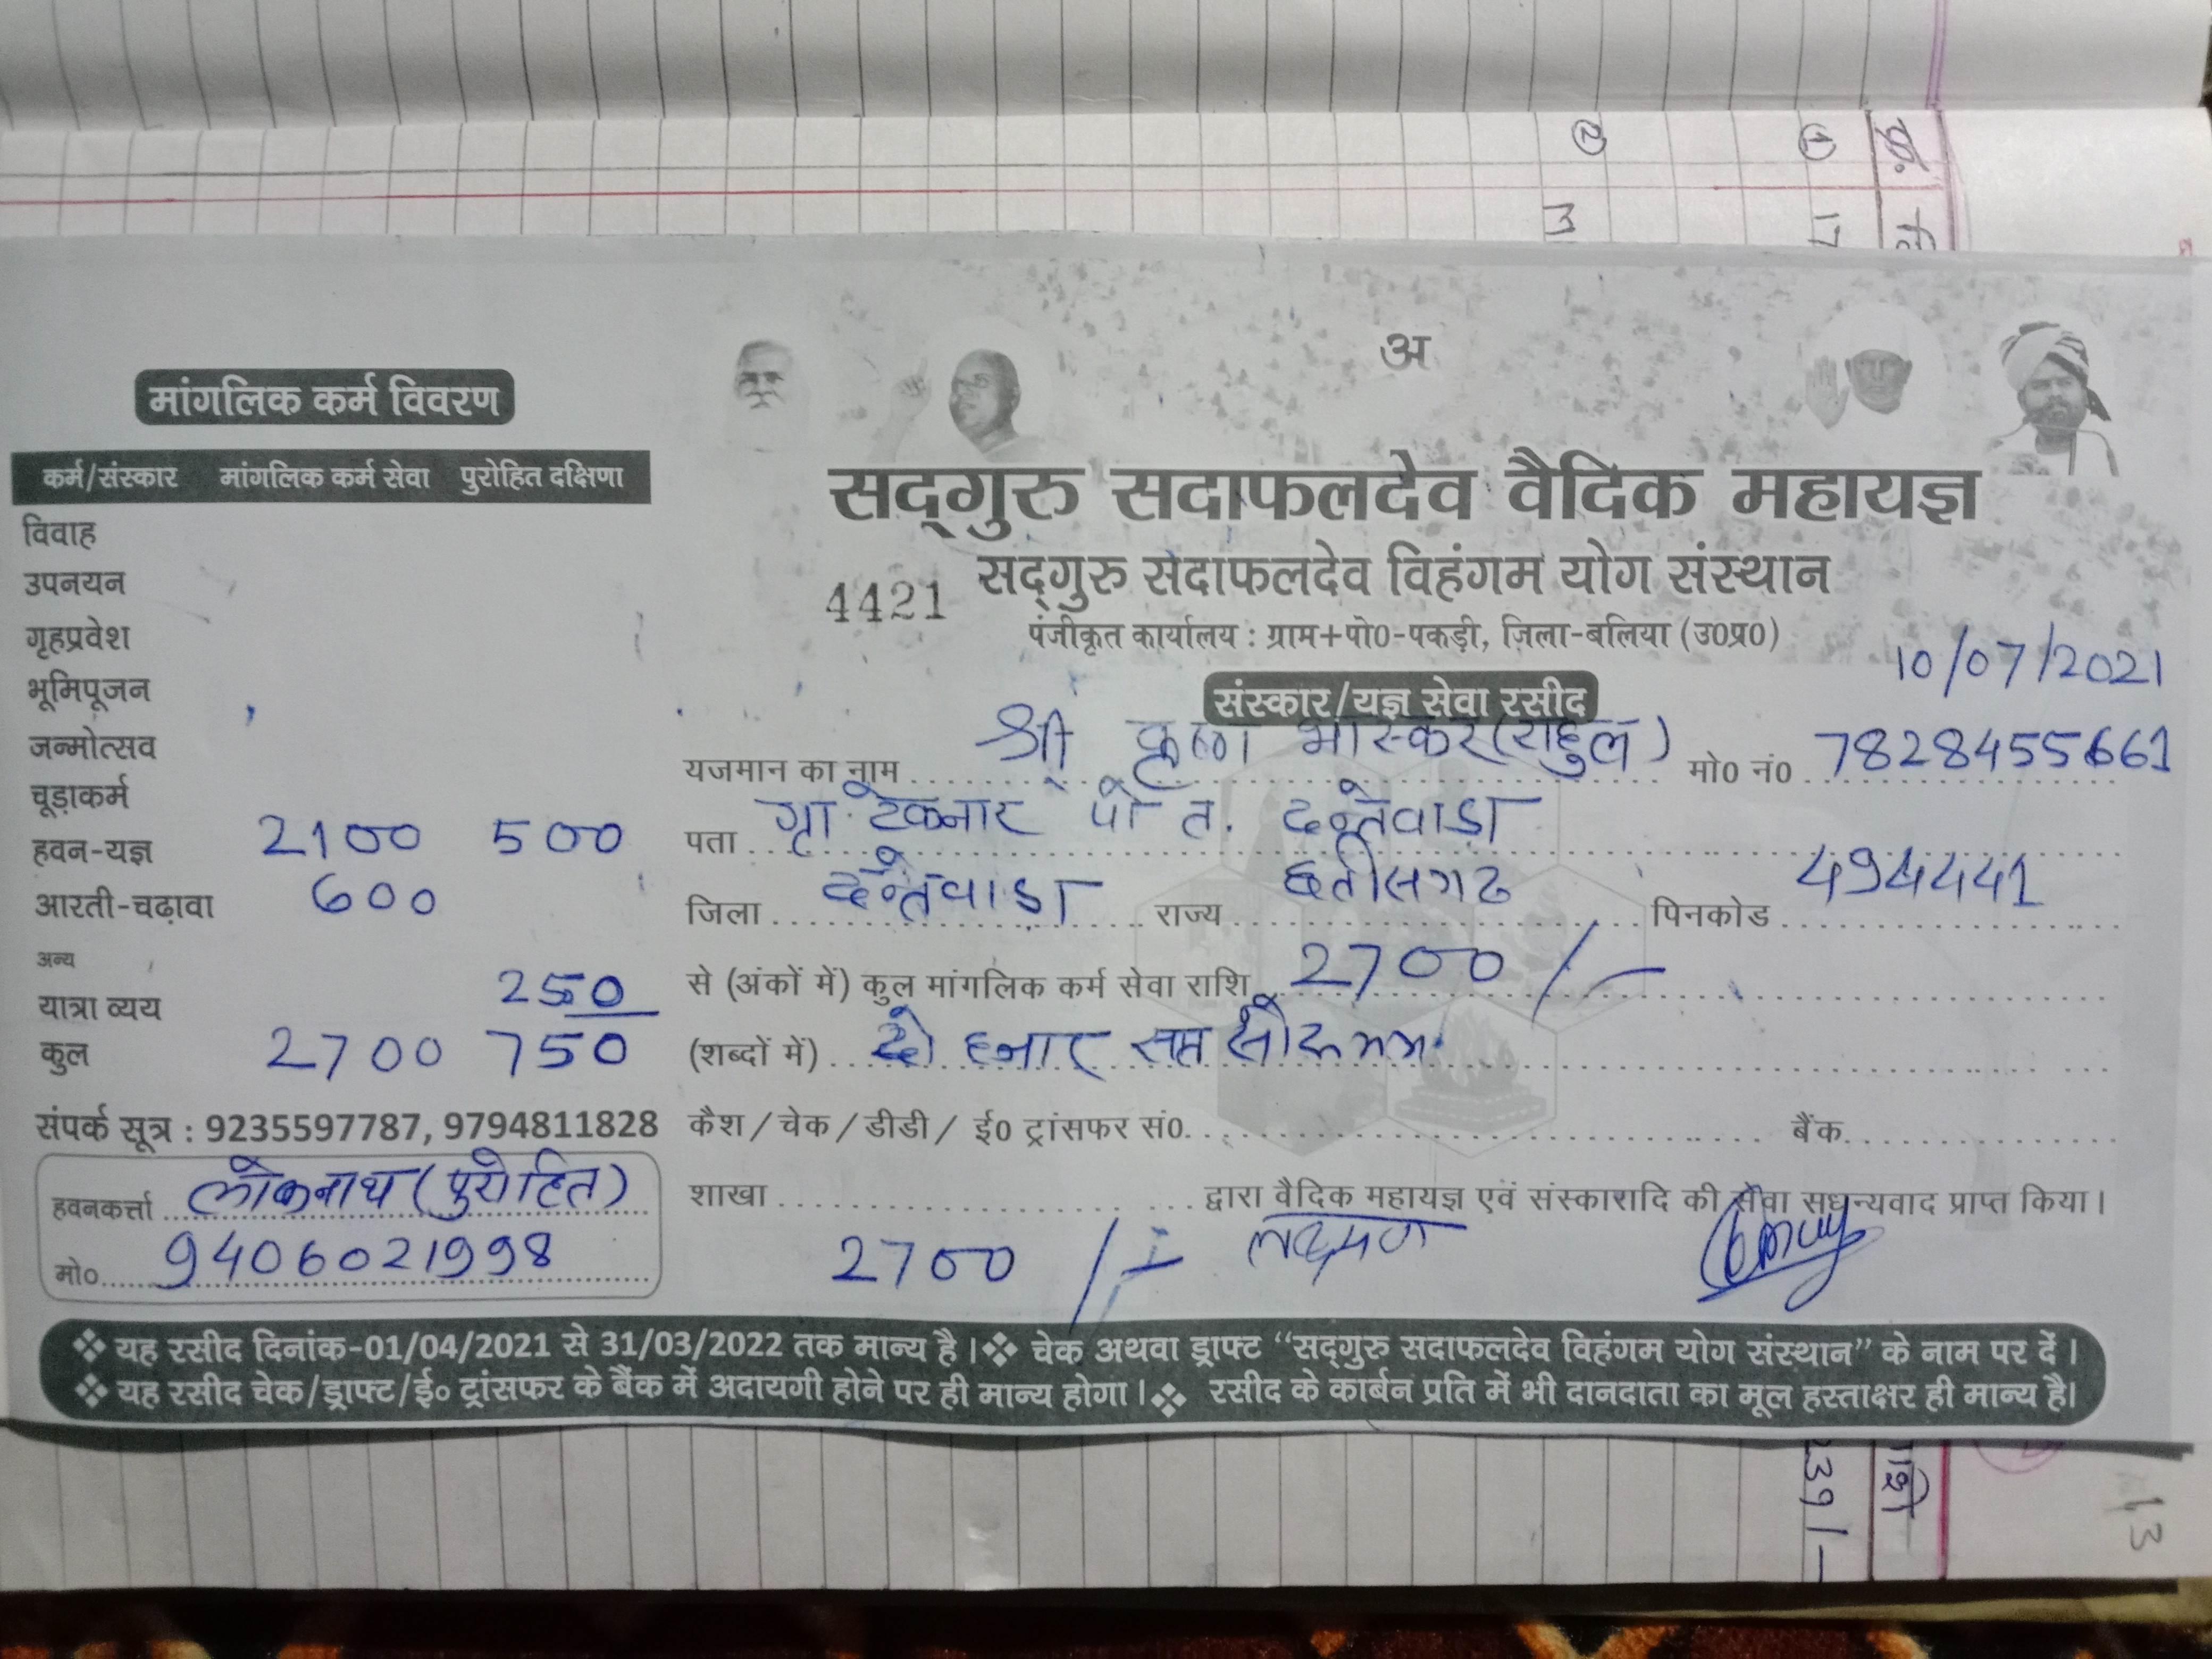 मांगलिक कर्म विवरण
कर्म/संस्कार मांगलिक कर्म सेवा पुरोहित दक्षिणा
विवाह
उपनयन
गृहप्रवेश
भूमिपूजन
जन्मोत्सव
चूड़ाकर्म
हवन-यज्ञ 2100 500
आरती-चढ़ावा 600
अन्य
यात्रा व्यय 250
कुल 2700 750
संपर्क सूत्र : 9235597787, 9794811828
हवनकर्त्ता लोकनाथ (पुरोहित)
मो० 9406021998
अ
सद्गुरु सदाफलदेव वैदिक महायज्ञ
सद्गुरु सदाफलदेव विहंगम योग संस्थान
4421
पंजीकृत कार्यालय : ग्राम+पो0-पकड़ी, ज़िला-बलिया (उ0प्र0)
10/07/2021
संस्कार/यज्ञ सेवा रसीद
यजमान का नाम श्री कृष्णा भास्कर (राहुल) मो0 नं0 7828455661
पता ग्रा. टेकनार पो त. दन्तेवाडा
जिला दन्तेवाडा राज्य छतीसगढ पिनकोड 494441
से (अंकों में) कुल मांगलिक कर्म सेवा राशि 2700/-
(शब्दों में) दो हजार सात सौ
कैश / चेक / डीडी / ई0 ट्रांसफर सं0 बैंक
शाखा द्वारा वैदिक महायज्ञ एवं संस्कारादि की सेवा सधन्यवाद प्राप्त किया।
2700/- लक्ष्मण
❖ यह रसीद दिनांक-01/04/2021 से 31/03/2022 तक मान्य है। ❖ चेक अथवा ड्राफ्ट “सद्गुरु सदाफलदेव विहंगम योग संस्थान” के नाम पर दें।
❖ यह रसीद चेक/ड्राफ्ट/ई० ट्रांसफर के बैंक में अदायगी होने पर ही मान्य होगा। ❖ रसीद के कार्बन प्रति में भी दानदाता का मूल हस्ताक्षर ही मान्य है।
क्र.
① 17
②
13